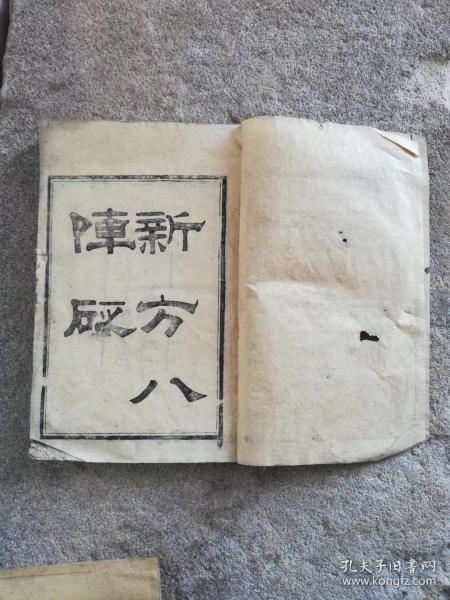 新方八
陣砭
孔夫子旧书网
www.kongfz.com